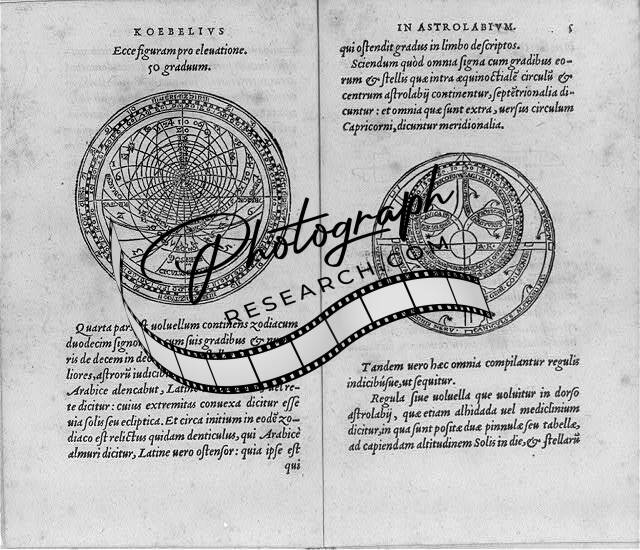 KOEBELIVS
Ecce figuram pro eleuatione.
50 graduum.
Quarta pars est uoluellum continens zodiacum
duodecim signo cum suis gradibus &
ris de decem in de
liores, astrorũ iudicib
Arabice alencabut, Latin re-
te dicitur: cuius extremitas conuexa dicitur esse
uia solis seu ecliptica. Et circa initium in eodẽ zo-
diaco est relictus quidam denticulus, qui Arabicè
almuri dicitur, Latine uero ostensor: quia ipse est
qui
IN ASTROLABIVM. 5
qui ostendit gradus in limbo descriptos.
Sciendum quòd omnia signa cum gradibus eo-
rum & stellis quæ intra æquinoctialẽ circulũ &
centrum astrolabij continentur, septẽtrionalia di-
cuntur: et omnia quæ sunt extra, uersus circulum
Capricorni, dicuntur meridionalia.
Tandem uero hæc omnia compilantur regulis
indicibúsue, ut sequitur.
Regula siue uoluella que uoluitur in dorso
astrolabij, quæ etiam alhidada uel mediclinium
dicitur, in qua sunt positæ duæ pinnulæ seu tabellæ,
ad capiendam altitudinem Solis in die, & stellarũ
Photograph
RESEARCH.COM